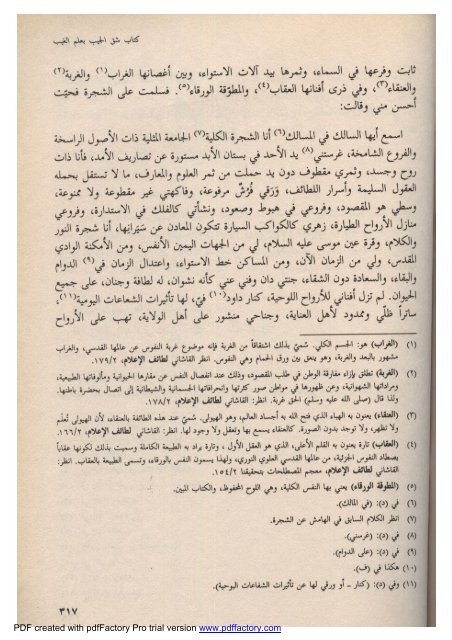 كتاب شق الجيب بعلم الغيب
ثابت وفرعها في السماء، وثمرها بيد آلات الاستواء، وبين أغصانها الغراب(١) والغربة(٢)
والعنقاء(٣)، وفي ذرى أفنانها العقاب(٤)، والمطوّقة الورقاء(٥). فسلمت على الشجرة فحيّت
أحسن مني وقالت:
اسمع أيها السالك في المسالك(٦) أنا الشجرة الكلية(٧) الجامعة المثلية ذات الأصول الراسخة
والفروع الشامخة، غرستني(٨) يد الأحد في بستان الأبد مستورة عن تصاريف الأمد، فأنا ذات
روح وجسد، وثمري مقطوف دون يد حملت من ثمر العلوم والمعارف، ما لا تستقل بحمله
العقول السليمة وأسرار اللطائف، ورَقي فُرُشٌ مرفوعة، وفاكهتي غير مقطوعة ولا ممنوعة،
وسطي هو المقصود، وفروعي في هبوط وصعود، ونشأتي كالفلك في الاستدارة، وفروعي
منازل الأرواح الطيارة، زهري كالكواكب السيارة تتكون المعادن عن سَيَرانها، أنا شجرة النور
والكلام، وقرة عين موسى عليه السلام، لي من الجهات اليمين الأنفس، ومن الأمكنة الوادي
المقدس، ولي من الزمان الآن، ومن المساكن خط الاستواء، واعتدال الزمان في(٩) الدوام
والبقاء، والسعادة دون الشقاء، جنتي دان وفني عني كأنه نشوان، له لطافة وجنان، على جميع
الحيوان. لم تزل أفناني للأرواح اللوحية، كنار داود(١٠) فيّ، لها تأثيرات الشعاعات اليومية(١١)،
ساتراً ظلّي وممدود لأهل العناية، وجناحي منشور على أهل الولاية، تهب على الأرواح
(١) (الغراب) هو: الجسم الكلي. سُمّيَ بذلك اشتقاقاً من الغربة فإنه موضوع غربة النفوس عن عالمها القدسي، والغراب
مشهور بالبعد والغربة، وهو ينعل بين ورق الحمام وهي النفوس. انظر: القاشاني لطائف الإعلام، ١٧٩/٢.
(٢) (الغربة) تطلق بإزاء مفارقة الوطن في طلب المقصود؛ وذلك عند انفصال النفس عن مقارها الحيوانية ومألوفاتها الطبيعية،
ومراداتها الشهوانية، وعن ظهورها في مواطن صور كثرتها وانحرافاتها الجسمانية والشيطانية إلى اتصال بحضرة باطنها.
ولذا قال (صلى الله عليه وسلم) الحق غربة. انظر: القاشاني لطائف الإعلام، ١٧٨/٢.
(٣) (العنقاء) يعنون به الهباء الذي فتح الله به أجساد العالم، وهو الهيولى. سُميّ عند هذه الطائفة بالعنقاء، لأن الهيولى تُعلَم
ولا تظهر، ولا توجد بدون الصورة. كالعنقاء يسمع بها وتعقل ولا وجود لها. انظر: القاشاني لطائف الإعلام، ١٦٦/٢.
(٤) (العقاب) تارة يعنون به القلم الأعلى، الذي هو العقل الأول، وتارة يراد به الطبيعة الكاملة وسميت بذلك لكونها عقاباً
يصطاد النفوس الجزئية، من عالمها القدسي العلوي النوري، ولهذا يسمون النفس بالورقاء، وتسمى الطبيعة بالعقاب. انظر:
القاشاني لطائف الإعلام، معجم المصطلحات بتحقيقنا ١٥٤/٢.
(٥) (المطوقة الورقاء) يعني بها النفس الكلية، وهي اللوح المحفوظ، والكتاب المبين.
(٦) في (د): (في المالك).
(٧) انظر الكلام السابق في الهامش عن الشجرة.
(٨) في (د): (غرسني).
(٩) في (د): (على الدوام).
(١٠) هكذا في (ف).
(١١) وفي (د): (كنار ـ أو ورقي لها عن تأثيرات الشفاعات البوحية).
٣١٧
PDF created with pdfFactory Pro trial version www.pdffactory.com